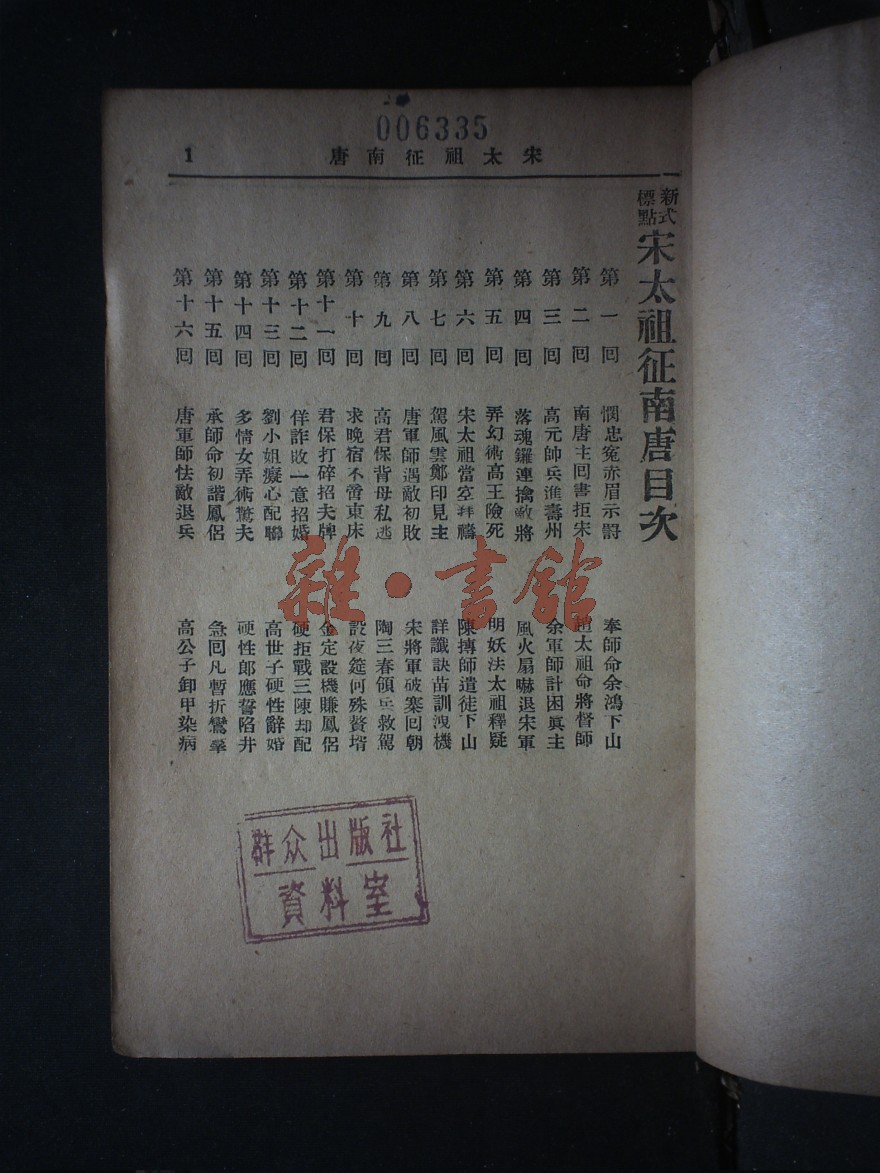 006335
宋太祖征南唐 1
新式標點 宋太祖征南唐目次
第一回 憫忠冤赤眉示罸 奉師命余鴻下山
第二回 南唐主回書拒宋 趙太祖命將督師
第三回 高元帥兵進壽州 余軍師計困眞主
第四回 落魂鑼連擒敵將 風火扇嚇退宋軍
第五回 弄幻術高王險死 明妖法太祖釋疑
第六回 宋太祖當空拜禱 陳摶師遣徒下山
第七回 駕風雲鄭印見主 詳讖訣苗訓洩機
第八回 唐軍師遇敵初敗 宋將軍破寨回朝
第九回 高君保背母私逃 陶三春領兵救駕
第十回 求晚宿不啻東床 設夜筵何殊贅壻
第十一回 君保打碎招夫牌 金定設機賺鳳侶
第十二回 佯詐敗一意招婚 硬拒戰三陳却配
第十三回 劉小姐癡心配聯 高世子硬性辭婚
第十四回 多情女弄術驚夫 硬性郎應誓陷井
第十五回 承師命初諧鳳侶 急回凡暫折鸞羣
第十六回 唐軍師怯敵退兵 高公子卸甲染病
雜·書館
群众出版社
資料室